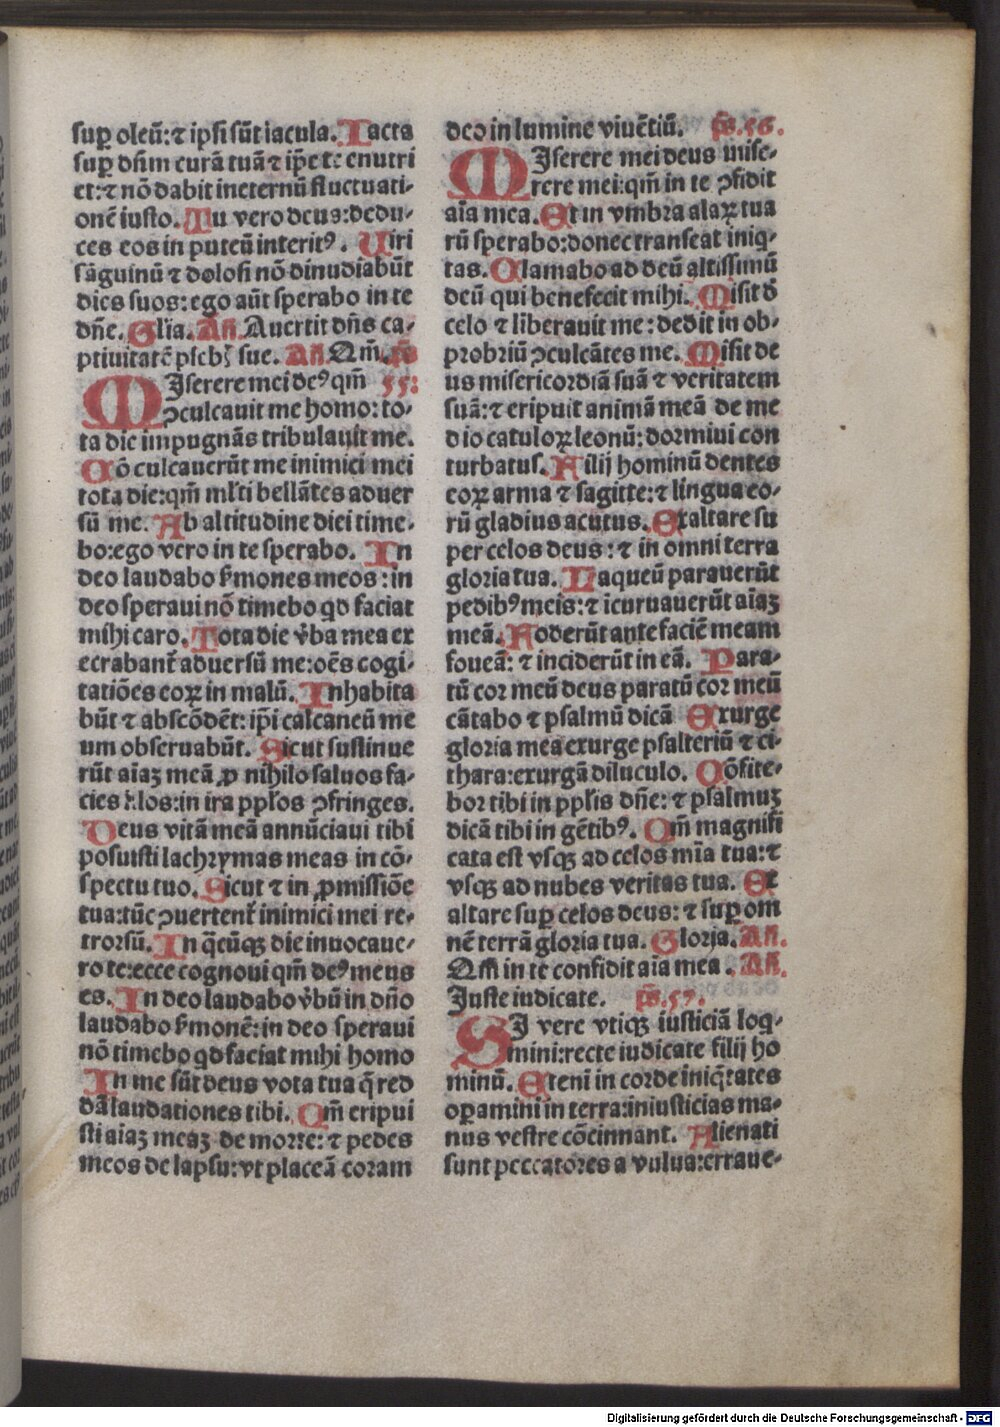 sup oleū:⁊ ipsi sūt iacula. Iacta
sup dn̄m curā tuā ⁊ ip̄e te enutri
et:⁊ nō dabit ineternū fluctuati-
onē iusto. Tu vero deus:dedu-
ces eos in puteū interitꝰ. Uiri
sāguinū ⁊ dolosi nō dimidiabūt
dies suos:ego aūt sperabo in te
dn̄e. Gl̄ia. An̄. Auertit dn̄s ca-
ptiuitatē plebꝭ sue. An̄ Qm̄. ps̄
MIserere mei deꝰ qm̄ 55:
ꝯculcauit me homo: to-
ta die impugnās tribulauit me.
Cō culcauerūt me inimici mei
tota die:qm̄ ml̄ti bellātes aduer
sū me. Ab altitudine diei time-
bo:ego vero in te sperabo. In
deo laudabo s̄mones meos:in
deo speraui nō timebo qd faciat
mihi caro. Tota die v̄ba mea ex
ecrabant̄ aduersū me:oēs cogi-
tatiōes eoꝝ in malū. Inhabita
būt ⁊ abscōdēt: ip̄i calcaneū me
um obseruabūt. Sicut sustinue
rūt aīaꝫ meā ꝓ nihilo saluos fa-
cies illos:in ira pp̄los ꝯfringes.
Deus vitā meā annūciaui tibi
posuisti lachrymas meas in cō-
spectu tuo. Sicut ⁊ in ꝓmissiōe
tua:tūc ꝯuertent̄ inimici mei re-
trorsū. In q̄cūqꝫ die inuocaue-
ro te:ecce cognoui qm̄ deꝰ meus
es. In deo laudabo v̄bū in dn̄o
laudabo s̄monē:in deo speraui
nō timebo qd faciat mihi homo
In me sūt deus vota tua q̄ red
dā laudationes tibi. Qm̄ eripui
sti aīaꝫ meaꝫ de morte:⁊ pedes
meos de lapsu:vt placeā coram
deo in lumine viuētiū. ps̄.56.
MIserere mei deus mise-
rere mei:qm̄ in te ꝯfidit
aīa mea. Et in vmbra alaꝝ tua
rū sperabo:donec transeat iniq-
tas. Clamabo ad deū altissimū
deū qui benefecit mihi. Misit d̄
celo ⁊ liberauit me:dedit in ob-
probriū ꝯculcātes me. Misit de
us misericordiā suā ⁊ veritatem
suā:⁊ eripuit animā meā de me
dio catuloꝝ leonū:dormiui con
turbatus. Filij hominū dentes
eoꝝ arma ⁊ sagitte:⁊ lingua eo-
rū gladius acutus. Exaltare su
per celos deus:⁊ in omni terra
gloria tua. Laqueū parauerūt
pedibꝰ meis:⁊ icuruauerūt aīaꝫ
meā. Foderūt ante faciē meam
foueā:⁊ inciderūt in eā. Para-
tū cor meū deus paratū cor meū
cātabo ⁊ psalmū dicā Exurge
gloria mea exurge psalteriū ⁊ ci-
thara:exurgā diluculo. Cōfite-
bor tibi in pp̄lis dn̄e:⁊ psalmuꝫ
dicā tibi in gētibꝰ. Qm̄ magnifi
cata est vsqꝫ ad celos mīa tua:⁊
vsqꝫ ad nubes veritas tua. Ex
altare sup celos deus:⁊ sup om
nē terrā gloria tua. Gloria. An̄.
Qm̄ in te confidit aīa mea. An̄.
Iuste iudicate. ps̄.57.
SI vere vtiqꝫ iusticiā loq-
mini:recte iudicate filij ho
minū. Eteni in corde iniq̄tates
opamini in terra:iniusticias ma-
nus vestre cōcinnant. Alienati
sunt peccatores a vulua:erraue-
Digitalisierung gefördert durch die Deutsche Forschungsgemeinschaft - DFG